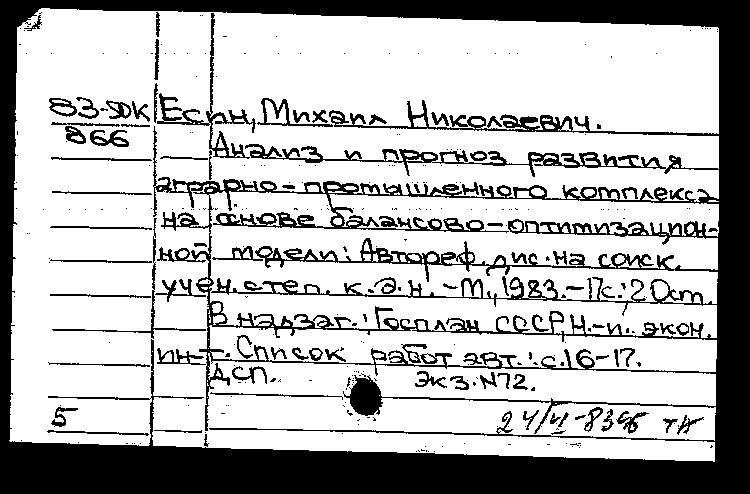 83-5ДК Есин, Михаил Николаевич.
866
Анализ и прогноз развития
аграрно-промышленного комплекса
на основе балансово-оптимизацион-
ной модели: Автореф. дис. на соиск.
учен. степ. к.э.н. - М., 1983. - 17с.; 20см.
В надзаг.: Госплан СССР, Н.-и. экон.
ин-т. Список работ авт.: с.16-17.
ДСП. Экз. N72.
5